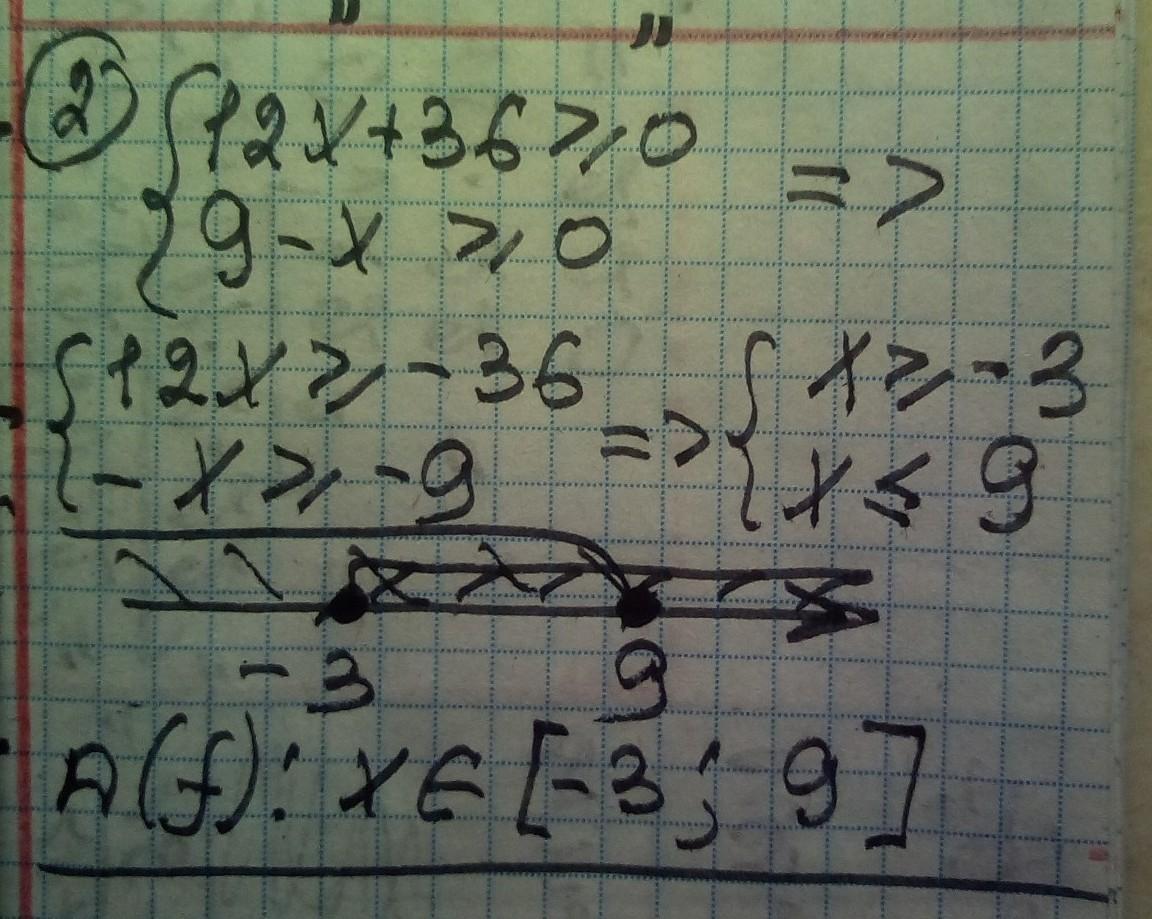 ② { 12x + 36 ⩾ 0
{ 9 - x ⩾ 0 =>
{ 12x ⩾ - 36 => { x ⩾ - 3
{ - x ⩾ - 9 { x ≤ 9
- 3 9
D(f): x ∈ [-3; 9]